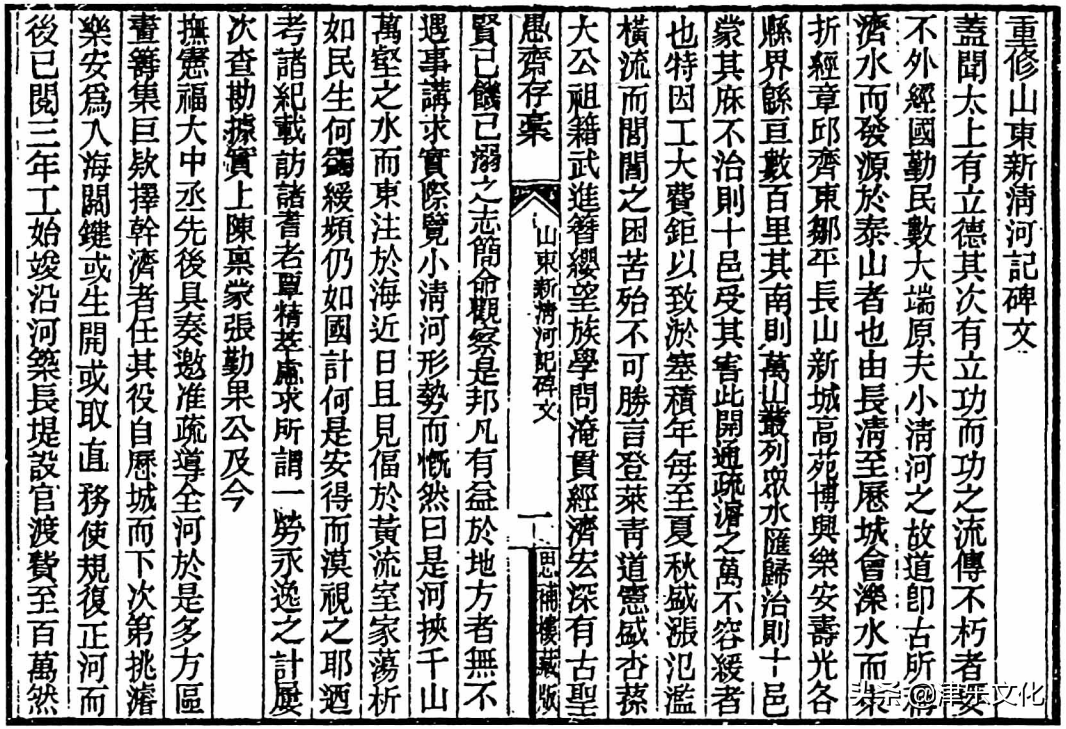 重修山東新淸河記碑文
蓋聞太上有立德其次有立功而功之流傳不朽者要
不外經國勤民數大端原夫小淸河之故道卽古所謂
濟水而發源於泰山者也由長淸至歷城會濼水而東
折經章邱齊東鄒平長山新城高苑博興樂安壽光各
縣界緜亘數百里其南則萬山叢列眾水匯歸治則十邑
蒙其庥不治則十邑受其害此開通疏濬之萬不容緩者
也特因工大費鉅以致淤塞積年每至夏秋盛漲氾濫
橫流而閭閻之困苦殆不可勝言登萊靑道憲盛杏蓀
大公祖籍武進簪纓望族學問淹貫經濟宏深有古聖
愚齋存稾
山東新淸河記碑文
一
思補樓藏版
賢已饑已溺之志簡命觀察是邦凡有益於地方者無不
遇事講求實際覽小淸河形勢而慨然曰是河挾千山
萬壑之水而東注於海近日且見偪於黃流室家蕩析
如民生何蠲緩頻仍如國計何是安得而漠視之耶迺
考諸紀載訪諸耆老覃精萃慮求所謂一勞永逸之計屢
次查勘據實上陳禀蒙張勤果公及今
撫憲福大中丞先後具奏邀准疏導全河於是多方區
畫籌集巨欵擇幹濟者任其役自歷城而下次第挑濬
樂安爲入海關鍵或生開或取直務使規復正河而
後已閱三年工始竣沿河築長堤設官渡費至百萬然
头条@津乐文化